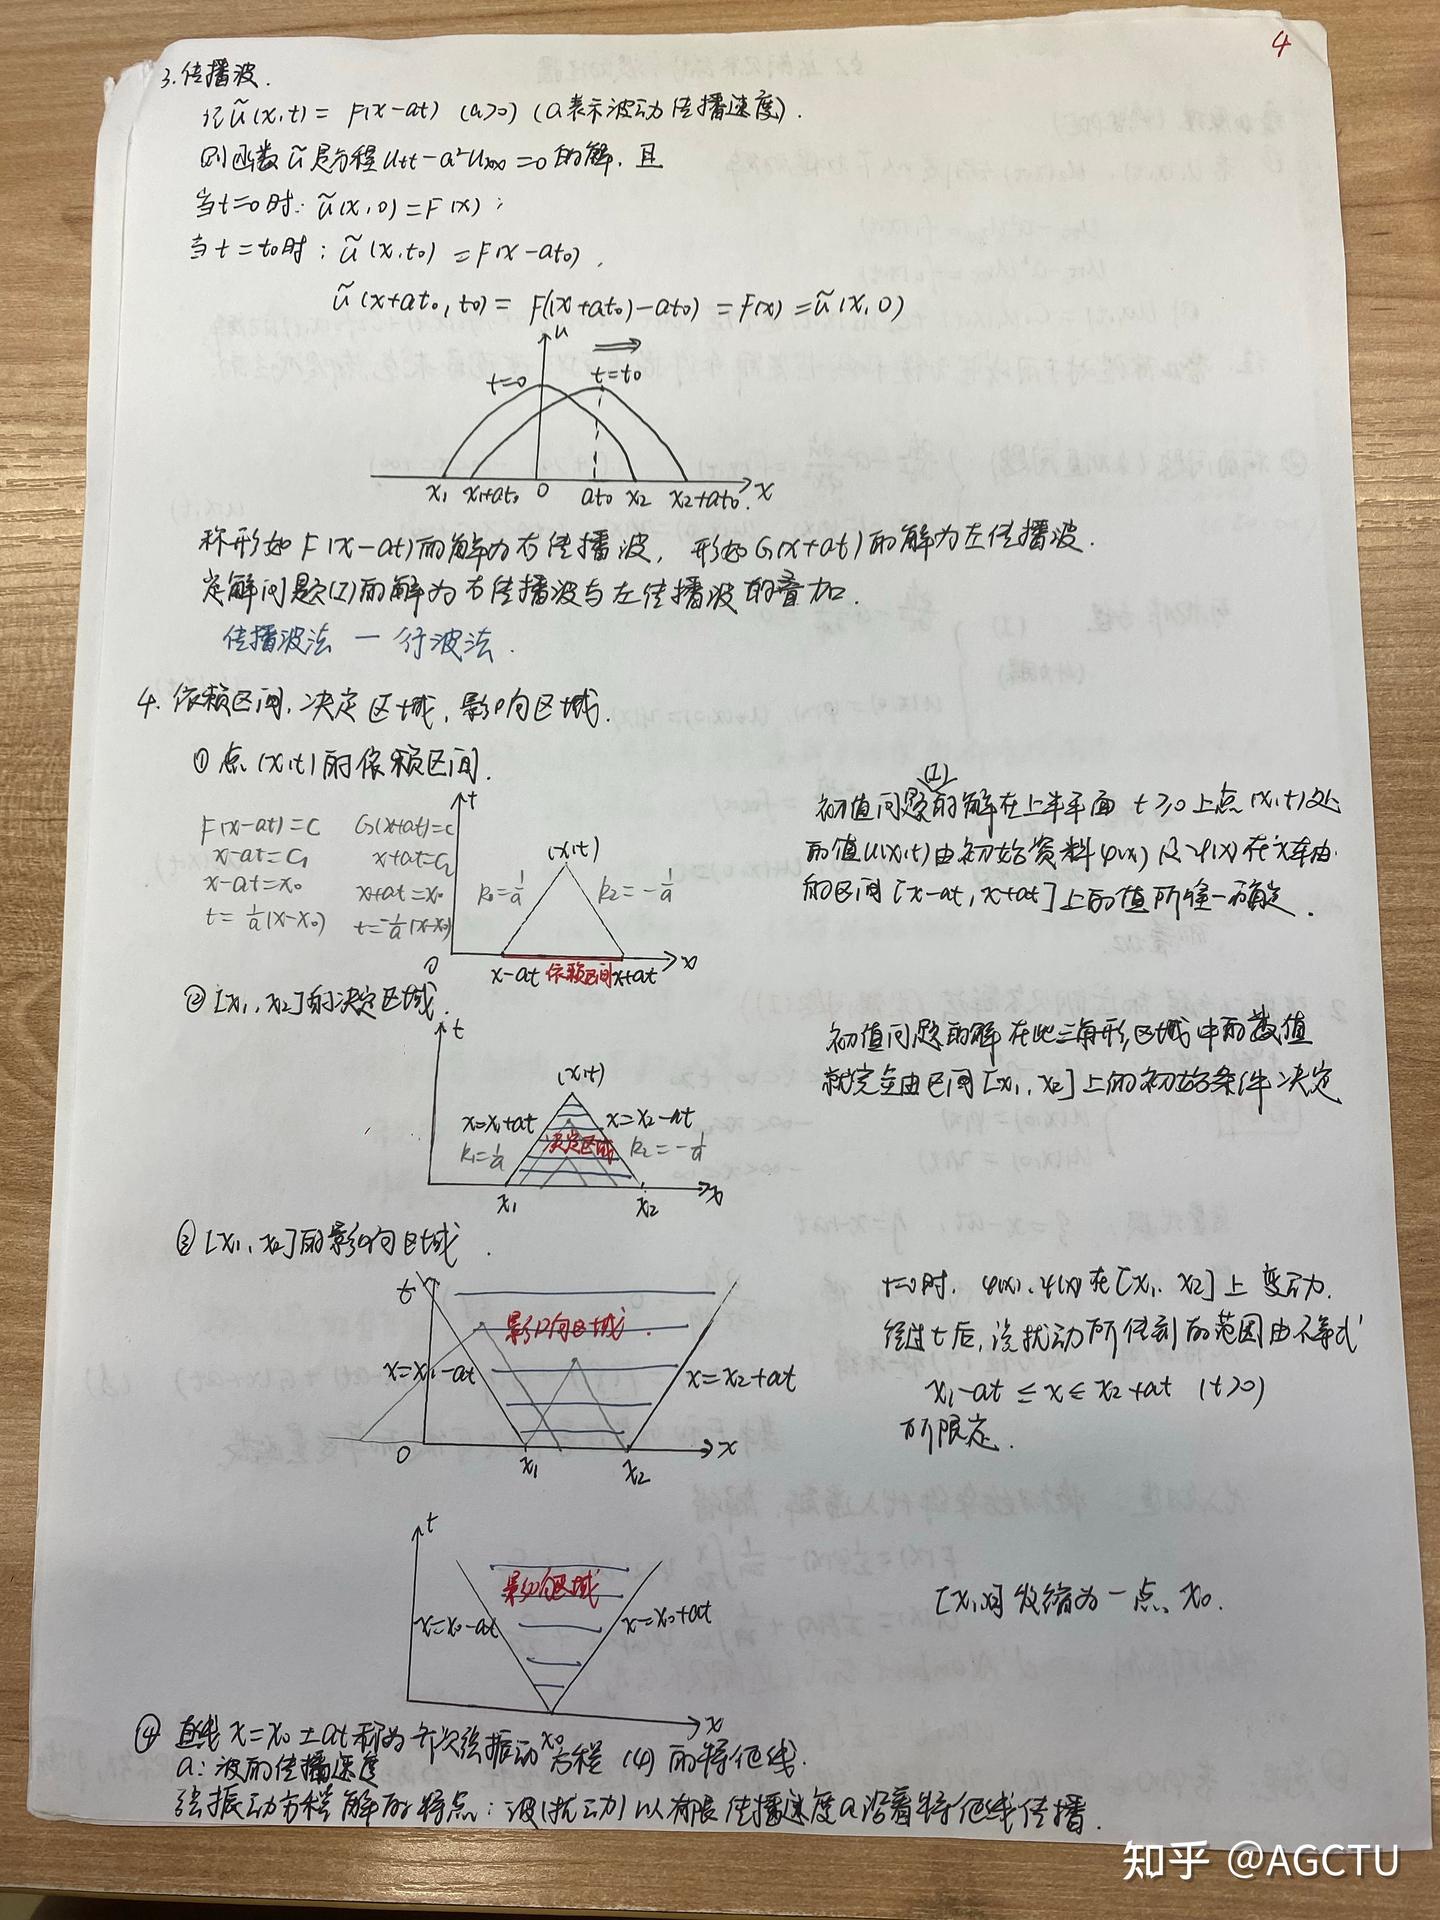 4
3. 传播波.
记ũ(x,t) = F(x-at) (a>0) (a表示波动传播速度).
则函数ũ是方程 utt-a²uxx=0的解, 且
当t=0时: ũ(x,0)=F(x);
当t=t₀时: ũ(x,t₀) =F(x-at₀),
ũ(x+at₀,t₀)= F((x+at₀)-at₀) =F(x) =ũ(x,0)
u
t=0
t=t₀
x₁ x₁+at₀ 0 at₀ x₂ x₂+at₀ x
称形如F(x-at)的解为右传播波, 形如G(x+at)的解为左传播波.
定解问题(I)的解为右传播波与左传播波的叠加.
传播波法 — 行波法.
4. 依赖区间, 决定区域, 影响区域.
① 点(x,t)的依赖区间.
F(x-at)=C G(x+at)=C
x-at=C₁ x+at=C₂
x-at=x₀ x+at=x₀
t=1/a(x-x₀) t=-1/a(x-x₀)
t
(x,t)
k₁=1/a k₂=-1/a
0
x
x-at 依赖区间 x+at
(I)
初值问题的解在上半平面 t≥0上点(x,t)处
的值u(x,t)由初始资料φ(x)及ψ(x)在x轴
的区间[x-at,x+at]上的值所唯一确定.
② [x₁,x₂]的决定区域.
t
(x,t)
x=x₁+at x=x₂-at
k₁=1/a 决定区域 k₂=-1/a
x₁ x₂ x
初值问题的解在此三角形区域中的数值
就完全由区间[x₁,x₂]上的初始条件决定
③ [x₁,x₂]的影响区域.
t
影响区域.
x=x₁-at x=x₂+at
0 x₁ x₂ x
t=0时, φ(x),ψ(x)在[x₁,x₂]上变动.
经过t后, 该扰动所传到的范围由不等式
x₁-at ≤ x ≤ x₂+at (t>0)
所限定.
t
影响区域
x=x₀-at x=x₀+at
x₀ x
[x₁,x₂]收缩为一点x₀.
④ 直线x=x₀±at称为齐次弦振动方程(4)的特征线.
a: 波的传播速度
弦振动方程解的特点: 波(扰动)以有限传播速度a沿着特征线传播.
知乎 @AGCTU